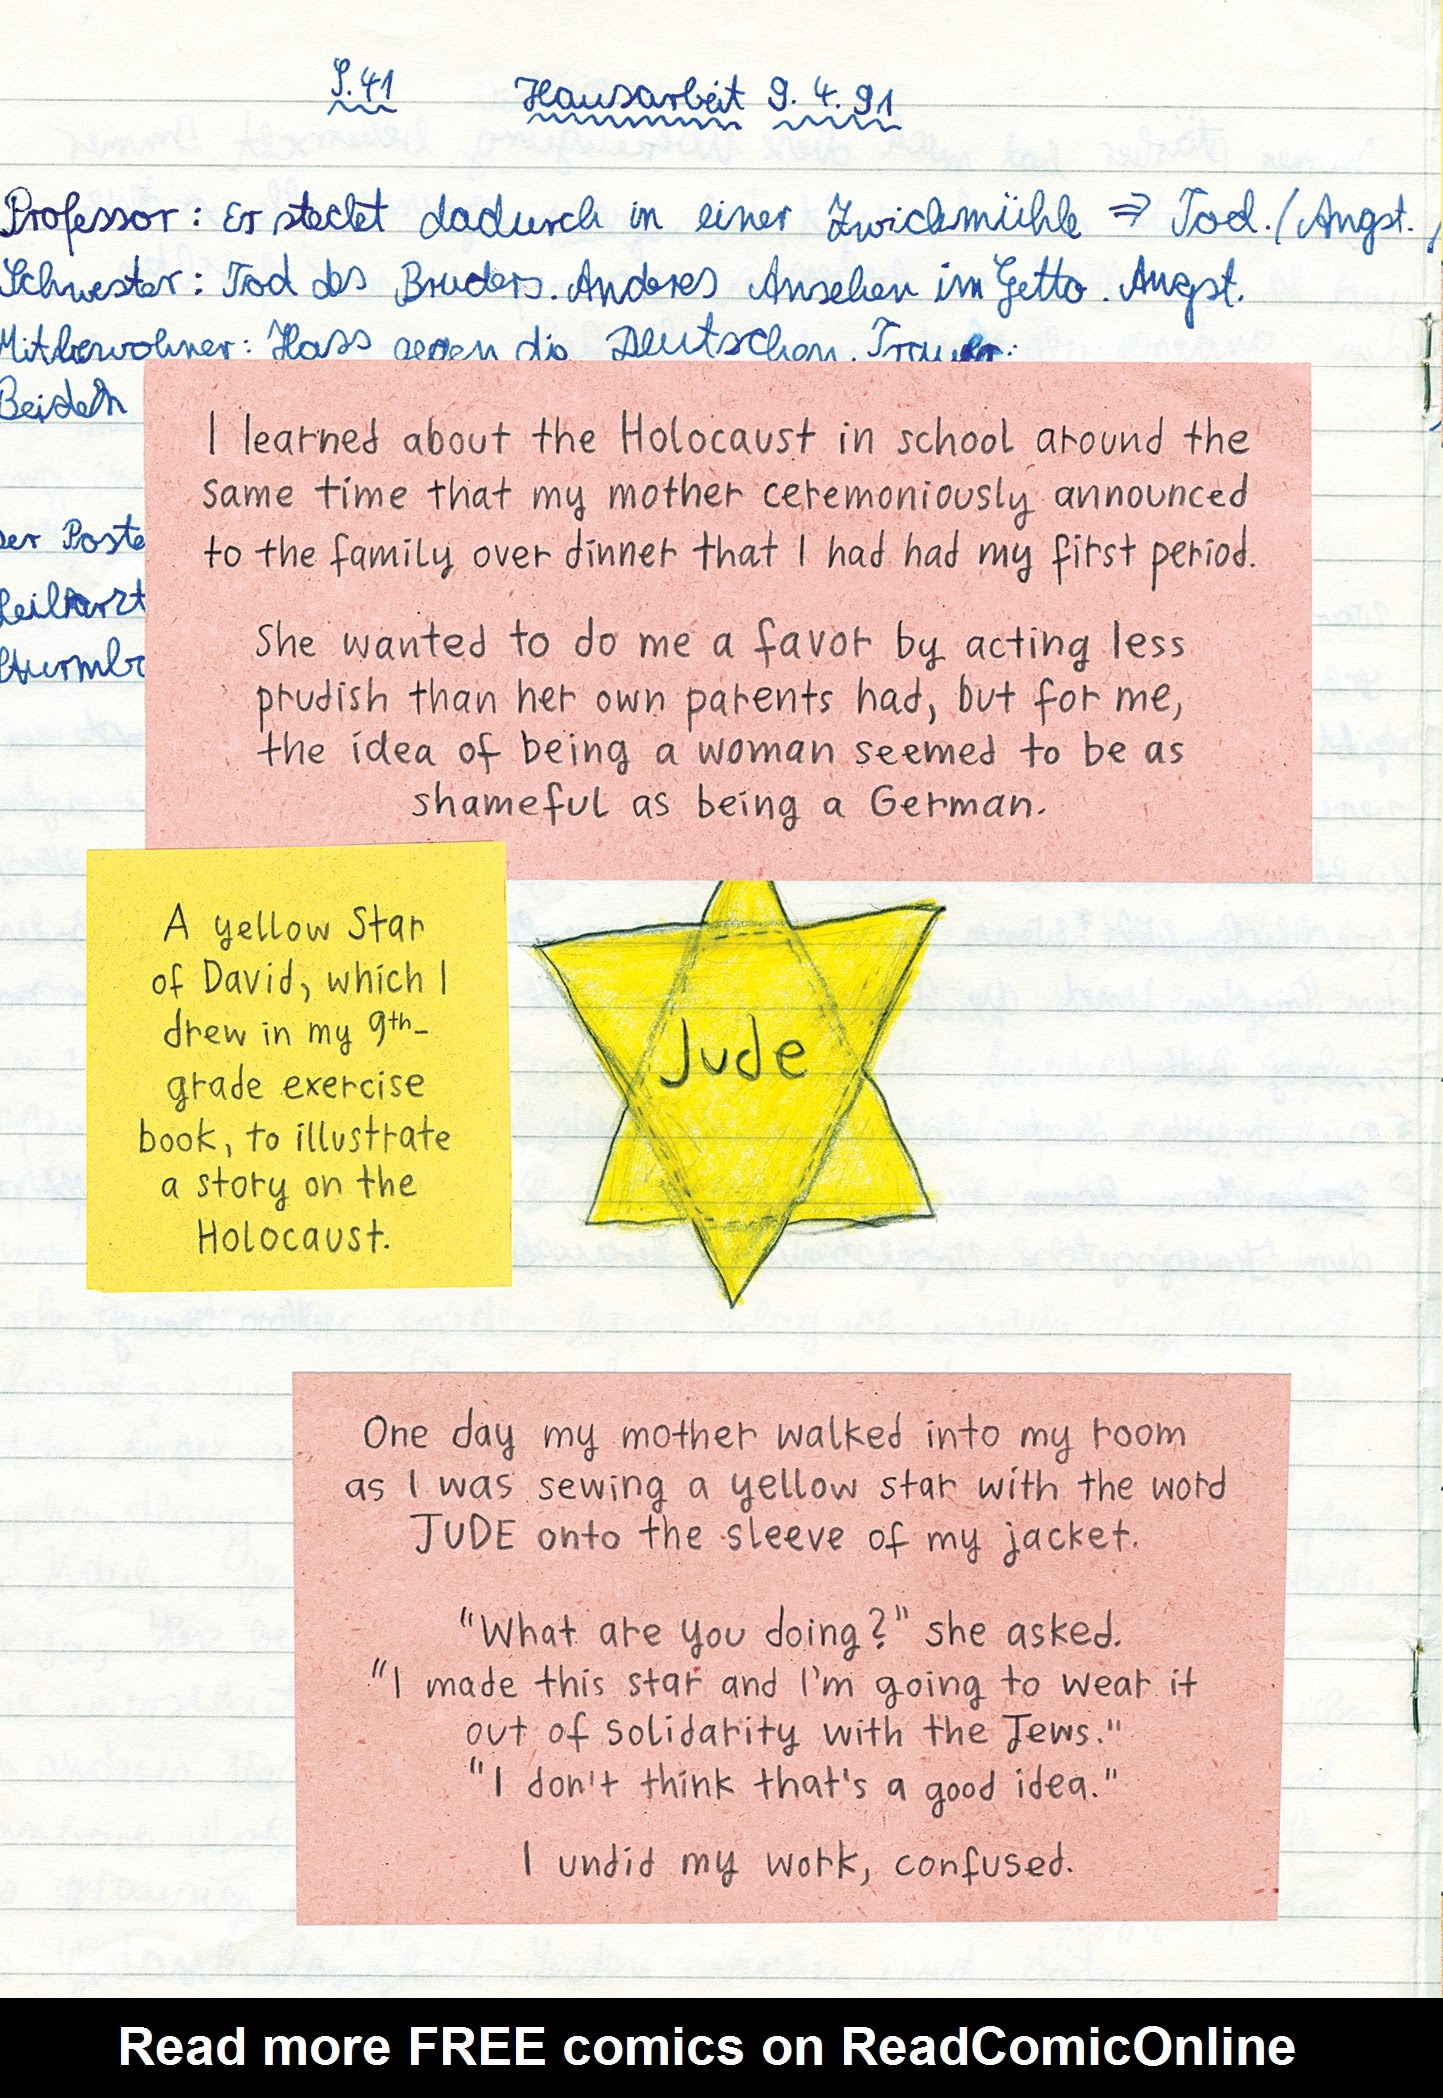 S. 41 Hausarbeit 9. 4. 91
Professor: Er steckt dadurch in einer Zwickmühle ⇒ Tod. / Angst.
Schwester: Tod des Bruders. Anderes Ansehen im Getto. Angst.
Mitbewohner: Hass gegen die Deutschen. Trauer.
Beiden
I learned about the Holocaust in school around the
same time that my mother ceremoniously announced
to the family over dinner that I had had my first period.
She wanted to do me a favor by acting less
prudish than her own parents had, but for me,
the idea of being a woman seemed to be as
shameful as being a German.
der Poste
Leibarzt
Sturmba
A yellow Star
of David, which I
drew in my 9th-
grade exercise
book, to illustrate
a story on the
Holocaust.
Jude
One day my mother walked into my room
as I was sewing a yellow star with the word
JUDE onto the sleeve of my jacket.
"What are you doing?" she asked.
"I made this star and I'm going to wear it
out of solidarity with the Jews."
"I don't think that's a good idea."
I undid my work, confused.
Read more FREE comics on ReadComicOnline